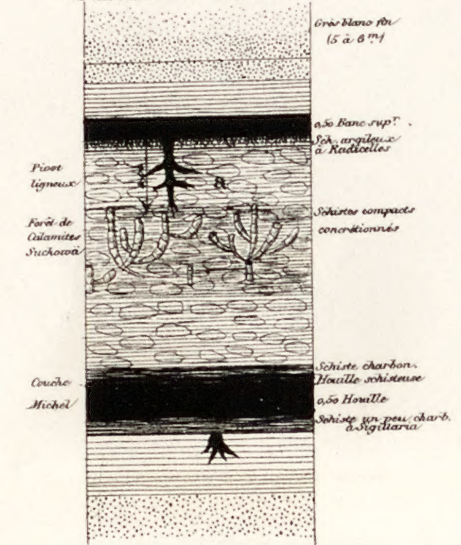 Grès blanc fin
(5 à 6m)
0,50 Banc supr.
Sch. argileux
à Radicelles
Pivot
ligneux
a
Forêt de
Calamites
Suchowii
Schistes compacts
concrétionnés
Schiste charbon.
Houille schisteuse
Couche
Michel
0,50 Houille
Schiste un peu charb.
à Sigillaria